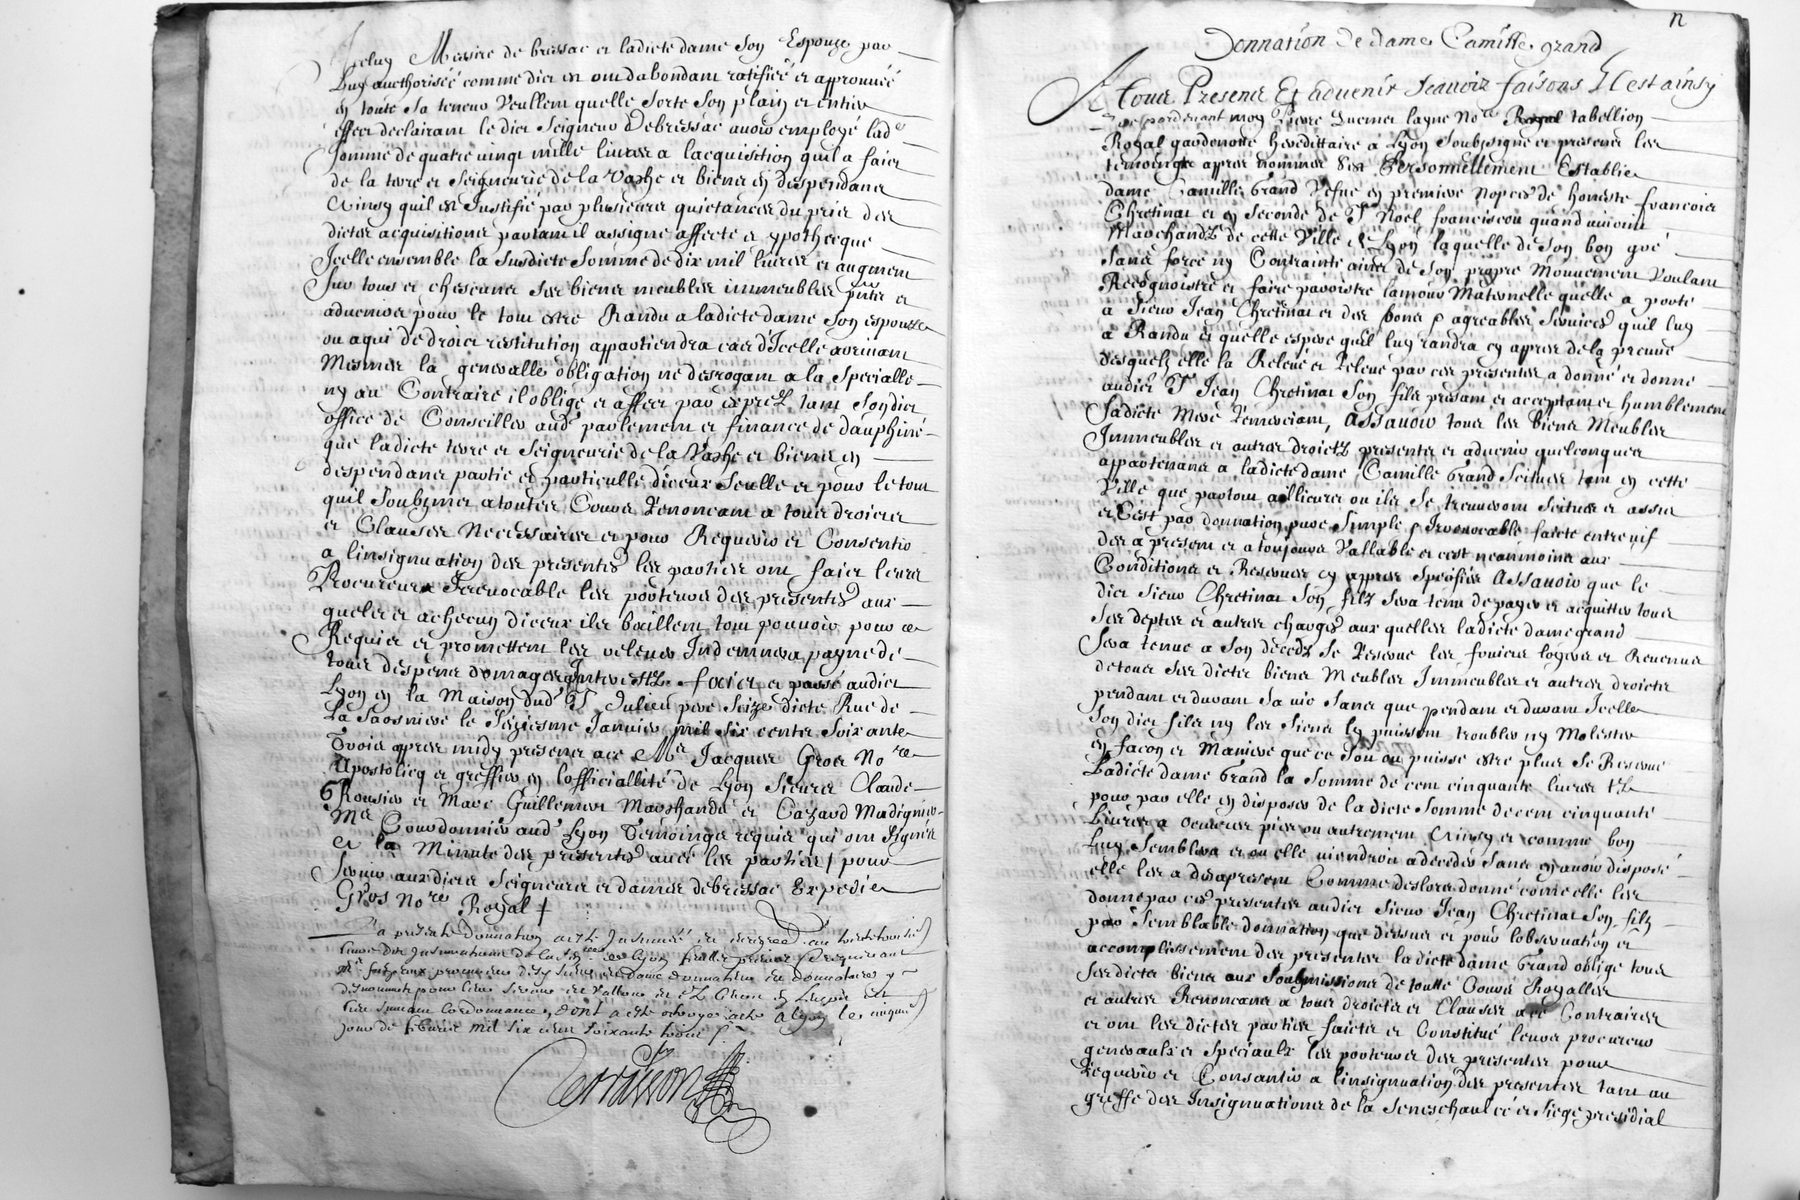 Iceluy Messire de bressac et ladicte dame son Espouze par
luy aucthorisée comme dict est ont dabondant ratiffiée et approuuée
en toute sa teneur Veullent quelle sorte son plain et entier
effect declairant le dict Seigneur Debressac auoir employé lad^e
somme de quatre vingt mille liures a lacquisition quil a faict
de la terre et Seigneurie de la Vache et biens en despendans
Ainsy quil est Justifié par plusieurs quictances du prix des
dictes acquisitions partant il assigne affecte et ypothecque
Icelle ensemble la susdicte somme de dix mil liures et augment
sur tous et chescuns ses biens meubles immeubles pnts et
aduenir pour le tout estre Randu a ladicte dame son espouze
ou a qui de droict restitution appartiendra cas d'Icelle aduenant
Mesmes la generalle obligation ne desrogant a la Specialle
ny au Contraire il oblige et affect par exprez tant son dict
office de Conseiller aud^t parlement et finance de dauphiné
que ladicte terre et Seigneurie de la Vache et biens en
despendans partie et particulle d'iceux seulle et pour le tout
quil soubzmet a touttes Cours Renoncant a tous droictz
et Clauses Necessaires et pour Requerir et Consentir
a linsignuation des presentes les parties ont faict leurs
Procureurs Irreuocable les porteurs des presentes aux
quels et a checun diceux ils baillent tout pouuoir pour ce
Requis et promettent les releuer Indemnes a payne de
tous despens domages Interestz faict et passé audict
Lyon en la Maison dud^t S^r Julien pere seize dicte Rue de
La Saosniere le seziesme Januier mil six cents soixante
Trois apres midy presence ace M^e Jacques Gros No^re
Apostolicq et greffier en lofficiallité de Lyon sieurs Claude
Rousier et Marc Guillemin Marchands et Cazard Madignier
M^e Courdonnier aud^t Lyon Temoings requis qui ont Signée
a la Minute des presentes auec les parties / pour
seruir aux dicts Seigneurs et dames de bressac Expedié
Gros No^re Royal
La presente Donnation a esté Insinuée et
de
dame donnateur et donnataire
pour leur seruir et valloir
suiuant lordonnance, dont a esté octroyé acte A Lyon le cinquie
Jour de feburier mil six cens soixante trois
n
Donnation de dame Camille grand
A tous Presens Et aduenir scauoir faisons quil est ainsy
que pardeuant moy No^re Royal tabellion
Royal gardenotte hereditaire a Lyon soubsigné et presens les
temoings apres nommes S'est Personnellement Establie
dame Camille Grand Vefue en premiere nopces de honeste francois
Chretinat et en seconde de S^r Noel franciscou quand viuoint
Marchandz de cette Ville de Lyon laquelle de son bon gré
sans force ny Contrainte ains de son propre Mouuement Voulant
Recognoistre et faire paroistre lamour Maternelle quelle a porté
a sieur Jean Chretinat et des bons et agreables seruices quil luy
a Randu et quelle espere quil luy randra cy appres de la preuue
desquelz elle la Releué et Releue par ces presentes a donné et donne
audict S^r Jean Chretinat son fils presant et acceptant et humblement
sadicte Mere Remerciant, Assauoir tous les biens Meubles
Immeubles et autres droictz presents et aduenir quelconques
appartenans a ladicte dame Camille Grand scitues tant en cette
Ville que partout aillieurs ou ils se treuueront scitues et assis
et C'est par donnation pure simple & Irreuocable faicte entre vif
des a present et a toujours Vallable et cest neanmoins aux
Conditions et Reserues cy appres speciffies Assauoir que le
dict sieur Chretinat son filz sera tenu de payer et acquitter tous
ses deptes et autres charges aux quelles ladicte dame grand
sera tenue a son decedz se Reserue les fruicts loyers et Reuenus
de tous ses dicts biens Meubles Immeubles et autres droicts
pendant et durant sa vie sans que pendant et durant Icelle
son dict fils ny les siens ly puissent troubler ny Molester
en facon et Maniere que ce soit ou puisse estre plus se Reserue
Ladicte dame Grand la somme de cent cinquante liures tz
pour par elle en disposer de la dicte somme de cent cinquante
Liures a oeuures pies ou autrement Ainsy et comme bon
luy semblera et ou elle viendroit a deceder sans en auoir disposé
elle les a desapresent Comme deslors donné come elle les
donne par ces presentes audict sieur Jean Chretinat son filz
par semblable donnation que dessus et pour lobseruation et
accomplissement des presentes ladicte dame Grand oblige tous
ses dicts biens aux soubmissions de toutte Cours Royalles
et autres Renoncans a tous droicts et Clauses a ce Contraires
et ont les dictes parties faictes et Constitué leurs procureurs
generaulx et speciaulx les porteurs des presentes pour
Requerir et Consantir a linsignuation des presentes tant au
greffe des Insignuations de la seneschaulcé et siege presidial